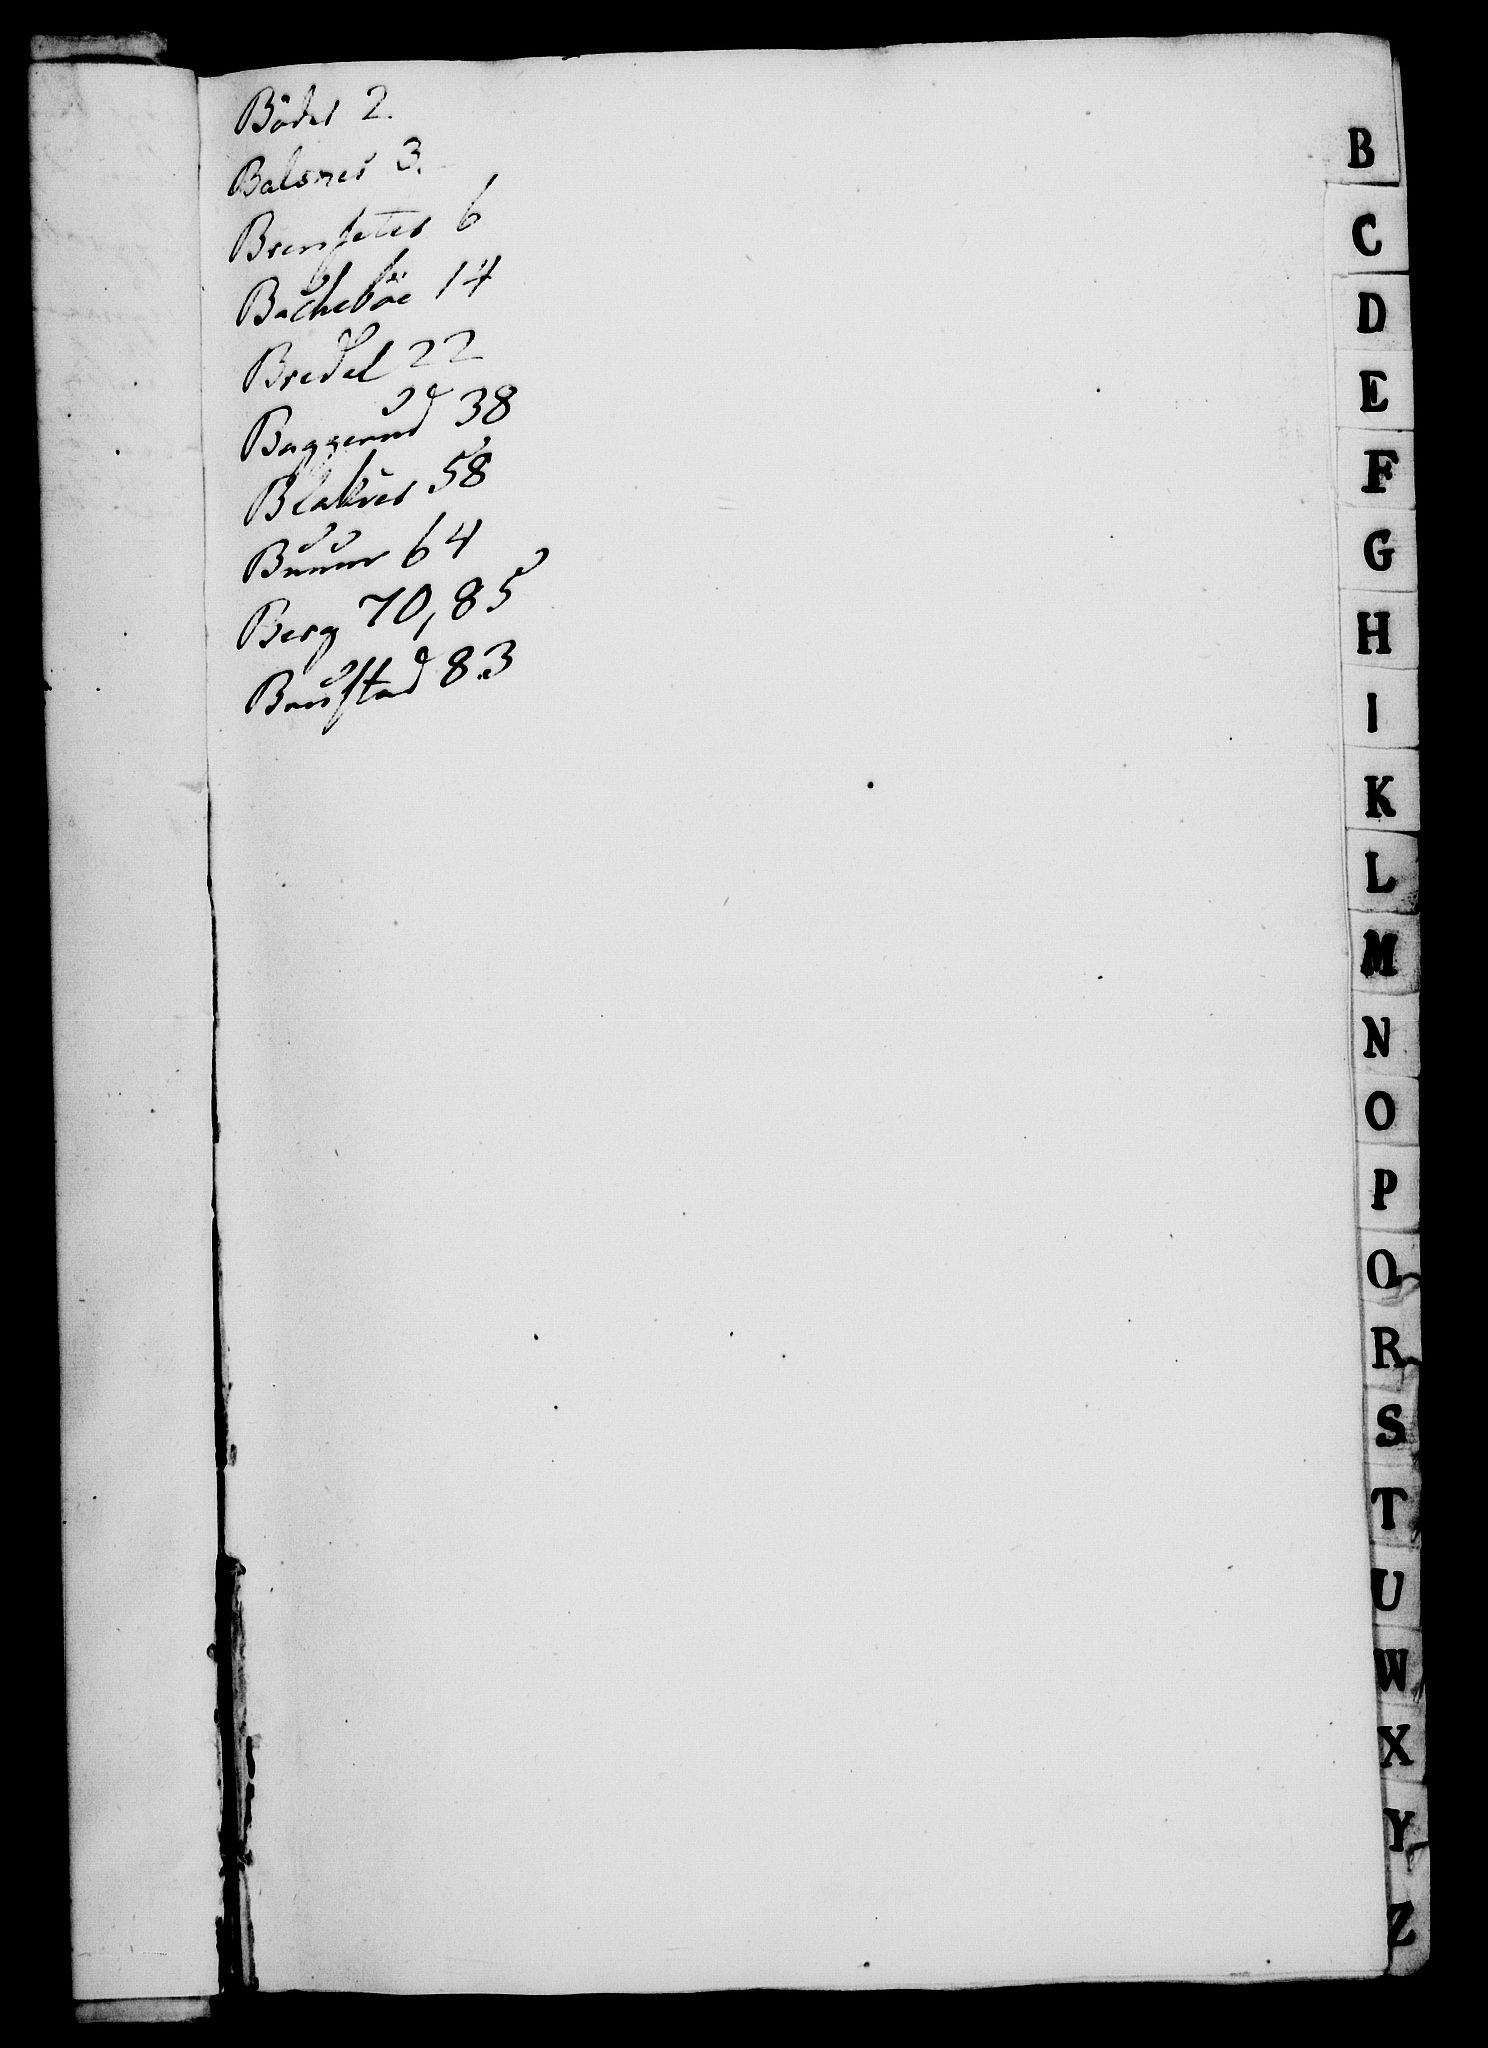 Bødes 2.
Balsnes 3.
Brensetes 6
Bachebøe 14
Bredel 22
Baggerud 38
Blakiær 58
Buuur 64
Berg 70, 85
Baustad 83
B
C
D
E
F
G
H
I
K
L
M
N
O
P
Q
R
S
T
U
W
X
Y
Z